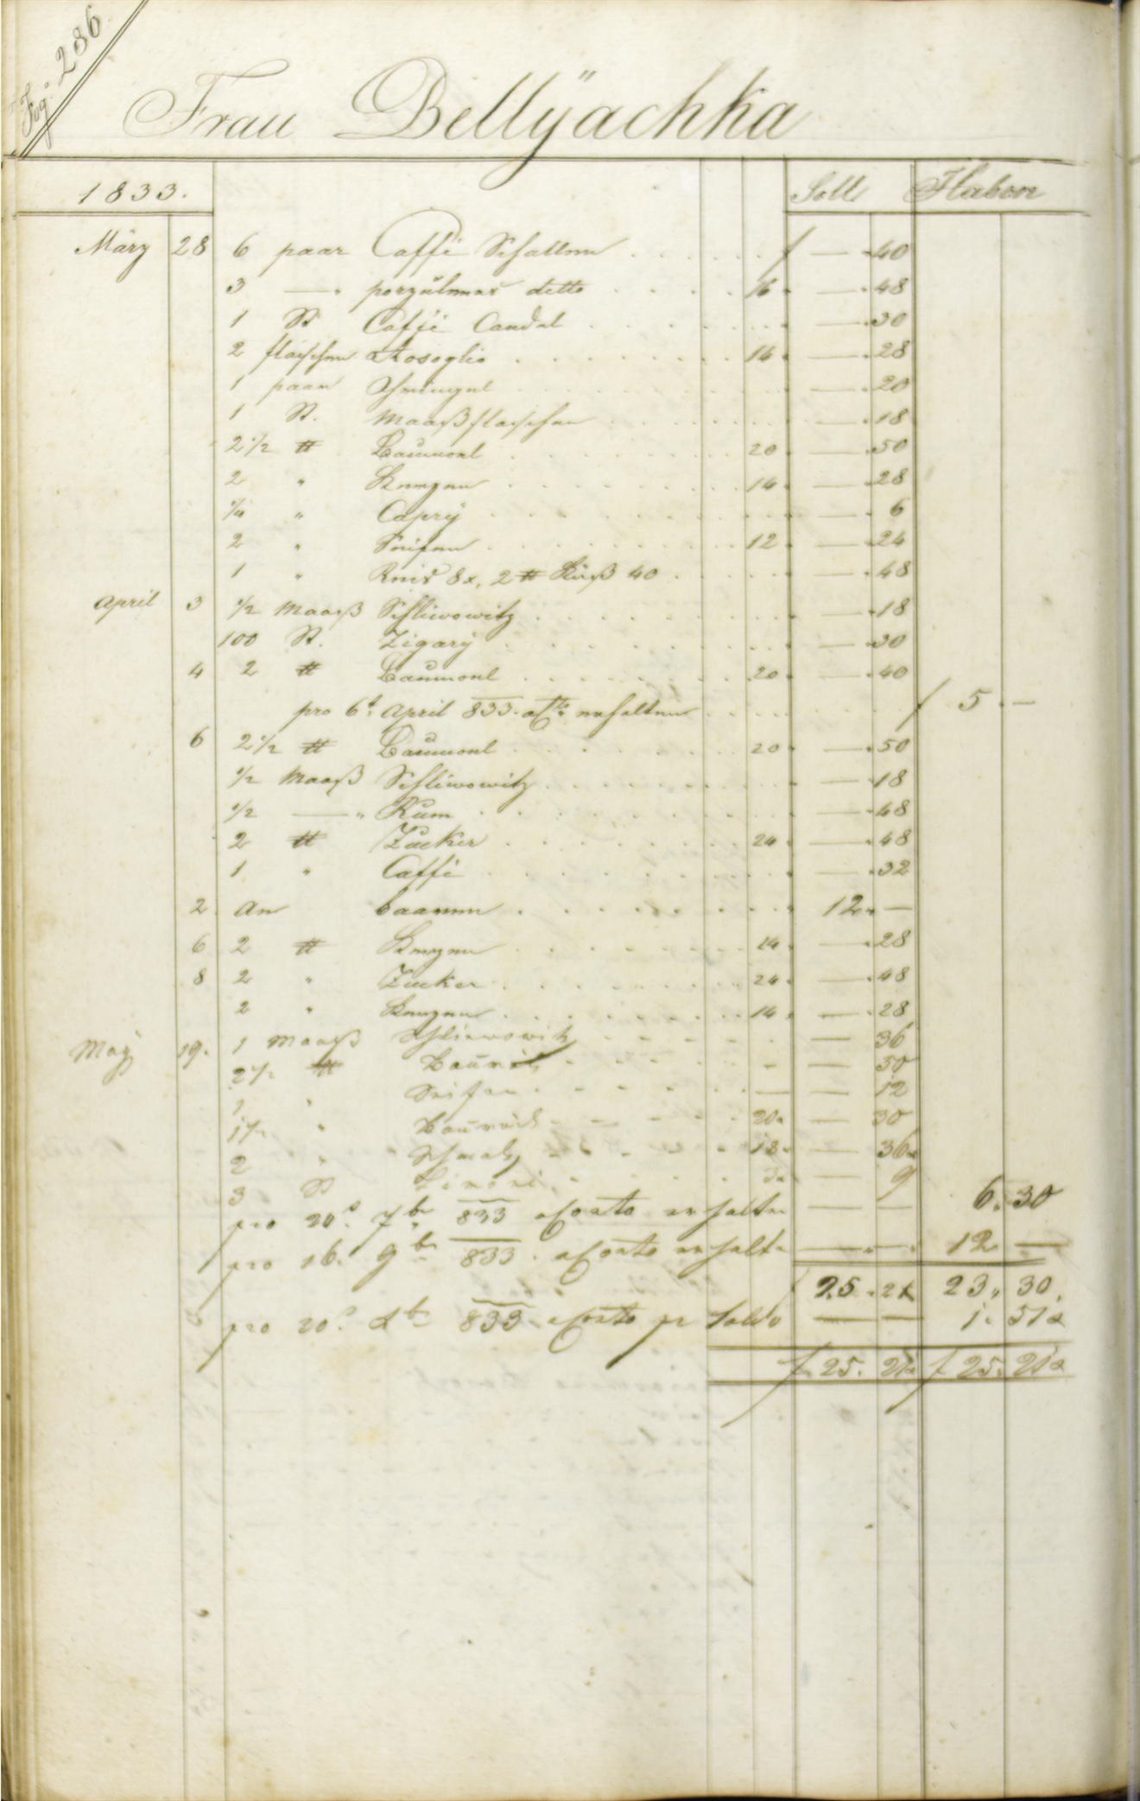 Fog. 286
Frau Bellÿachka
1833. Soll Haben
März 28 6 paar Caffé Schallen f — 40
3 — " porzulenas detto 16 — 48
1 St Caffé Candel — 30
2 flaschen Rosoglio 14 — 28
1 paar — 20
1 St. Maaßflaschen — 18
2 1/2 ℔ Baumöel 20 — 50
2 " Kerzen 14 — 28
1/4 " Caprÿ — 6
2 " Seifen 12 — 24
1 " Reis 8x, 2 ℔ 40 — 48
April 3 1/2 Maaß Schliwowitz — 18
100 St. Zigarÿ — 30
4 2 ℔ Baumoel 20 — 40
pro 6t April 833. a Cto erhalten f 5 —
6 2 1/2 ℔ Baumoel 20 — 50
1/2 Maaß Schliwowitz — 18
1/2 — " Rum — 48
2 ℔ Zucker 24 — 48
1 " Caffé — 32
2 An baarem 12 —
6 2 ℔ Kerzen 14 — 28
8 2 " Zucker 24 — 48
2 " Kerzen 14 — 28
Maÿ 19. 1 Maaß Schliwowitz — 36
2 1/2 ℔ Baumöl — 50
1 " Seifen — 12
1 1/2 " Baumöel 20 — 30
2 " Schmalz 18 — 36
3 St Limoni 3 — 9
pro 20t 7br 833 a Conto erhalten — — 6. 30
pro 16. 9br 833. a Conto erhalt — — 12 —
25. 21 23. 30.
pro 20t Xbr 833. a Conto pr Saldo — — 1. 51
f 25. 21 f 25. 21